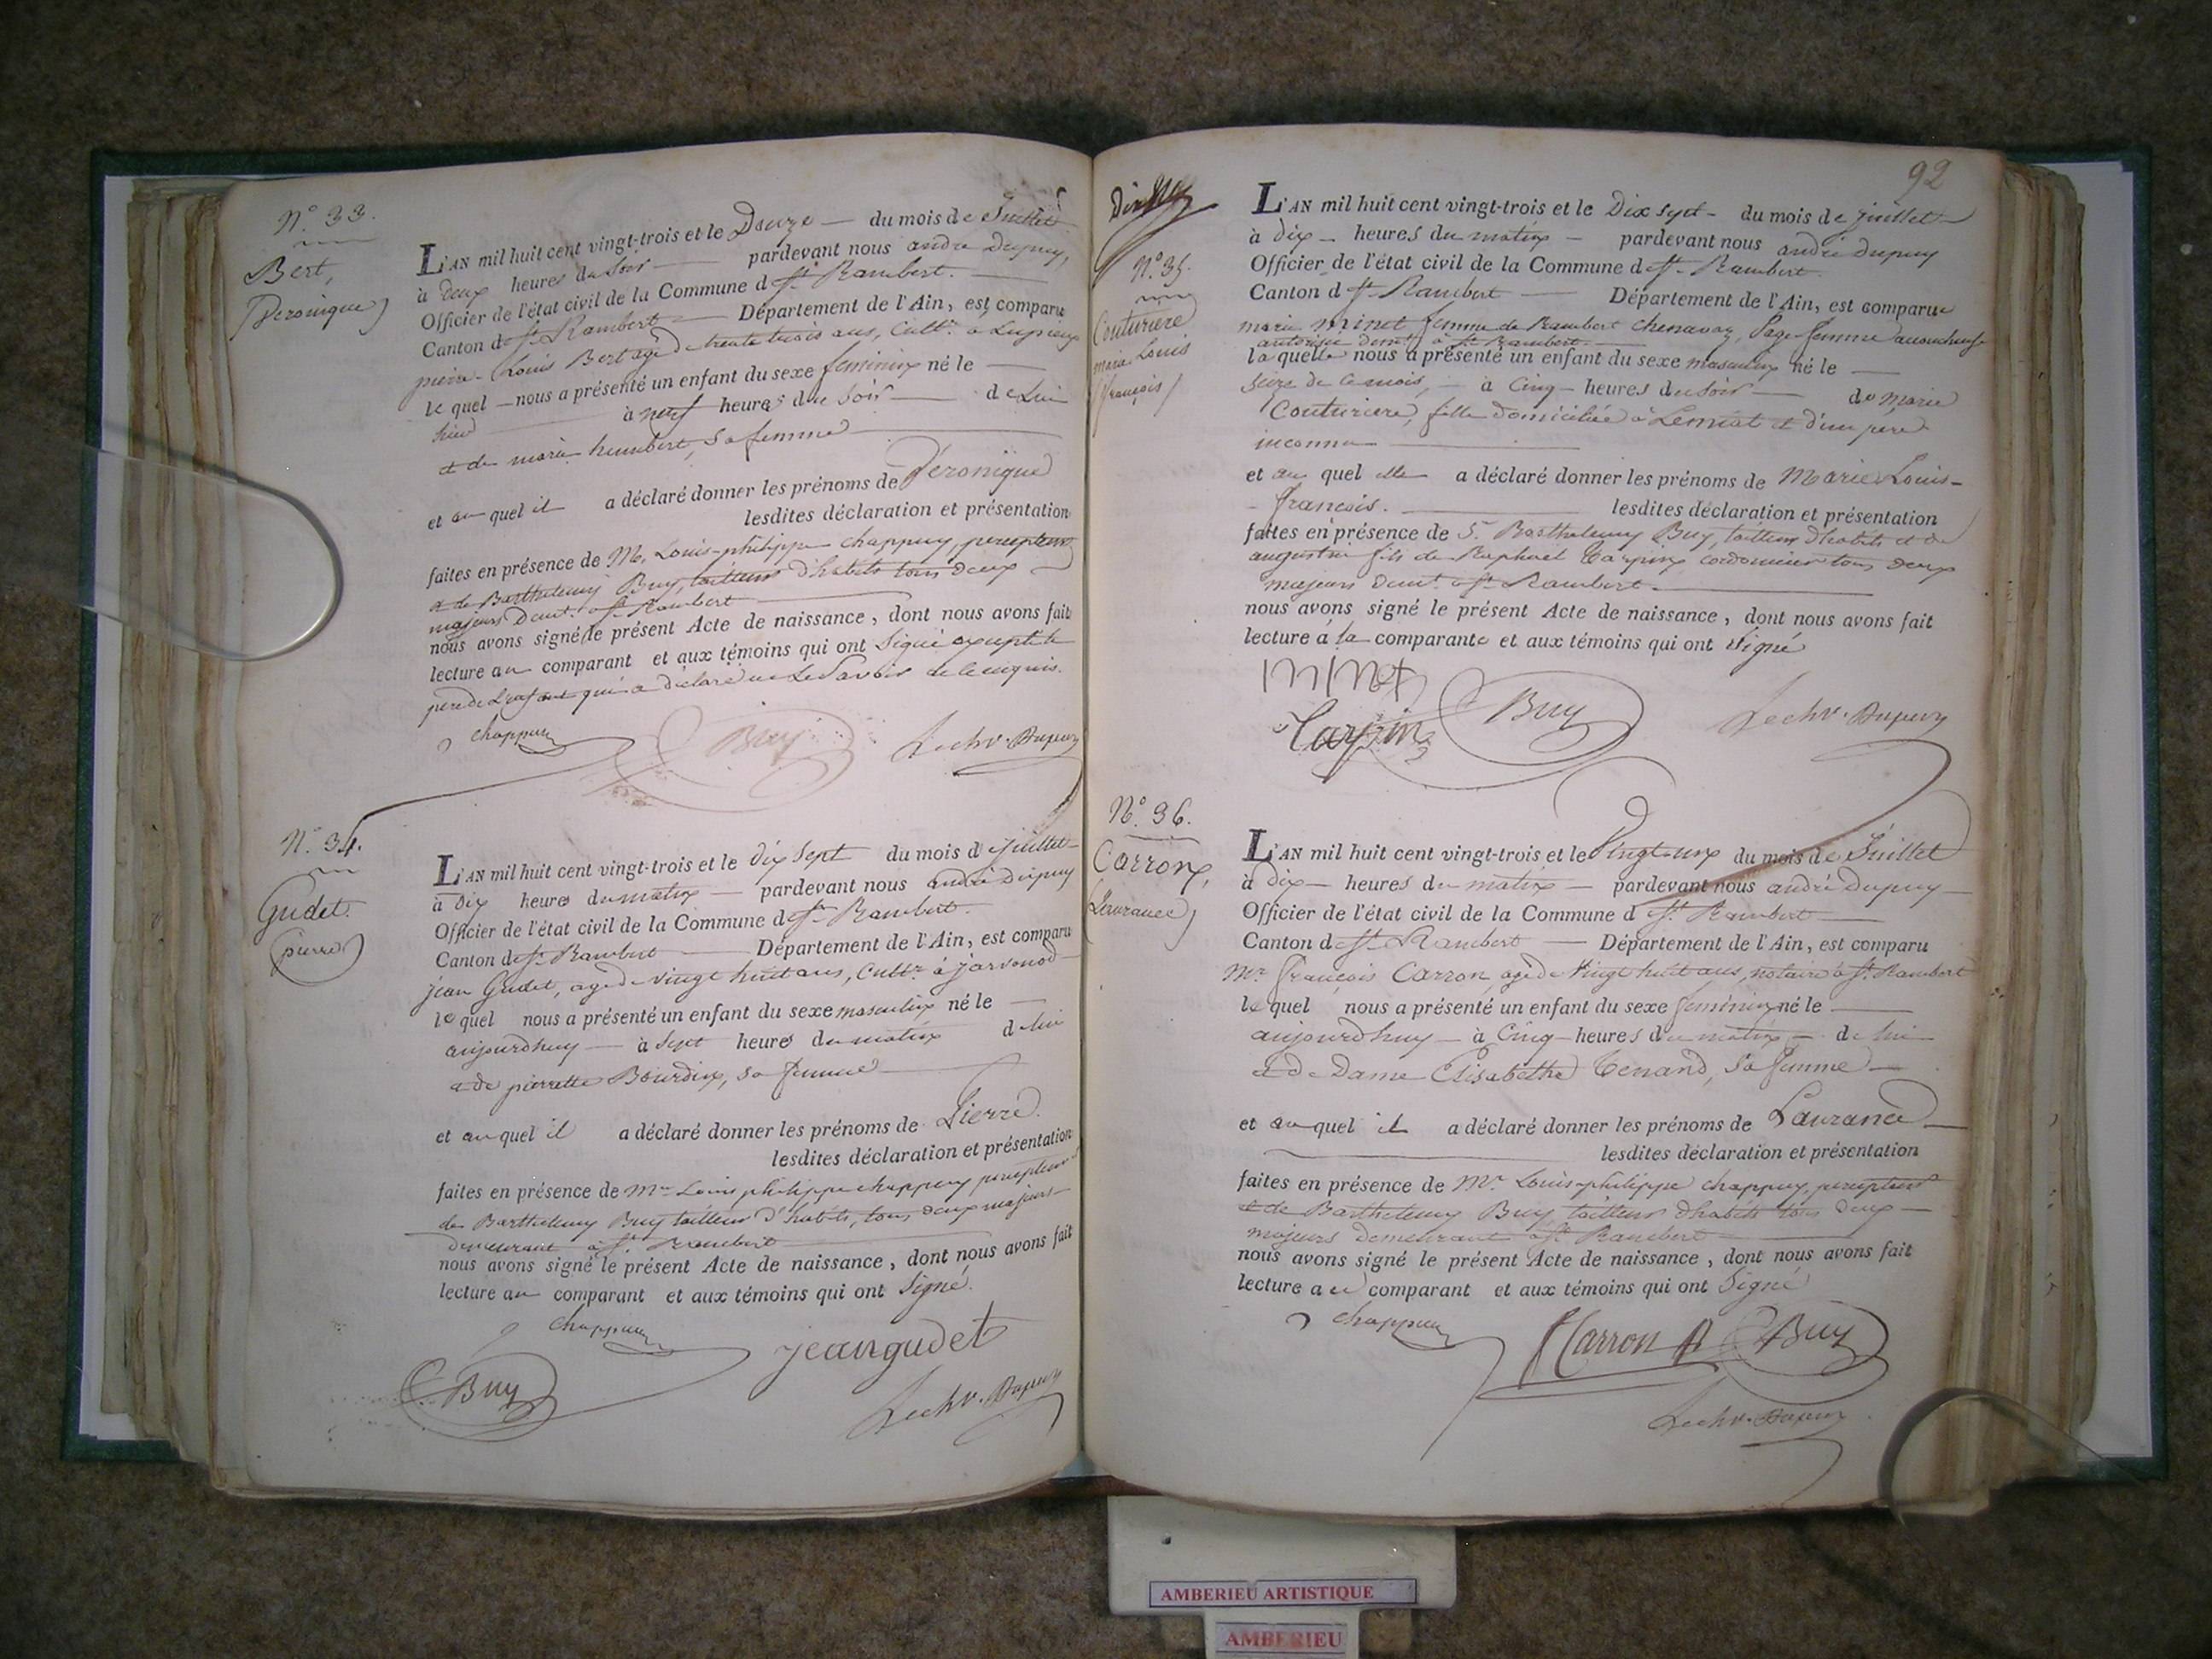 N.° 33.
Bert,
Veronique
L'AN mil huit cent vingt-trois et le Douze du mois de Juillet
à deux heures du soir pardevant nous andré Dupuy,
Officier de l'état civil de la Commune d St. Rambert.
Canton d St. Rambert Département de l'Ain, est comparu
pierre-Louis Bert agé de trente trois ans, Cultr. à
le quel nous a présenté un enfant du sexe feminin né le
hier à neuf heures du soir de lui
et de marie humbert, sa femme
et au quel il a déclaré donner les prénoms de Véronique
lesdites déclaration et présentation
faites en présence de M. Louis-philippe chappuy, percepteur
et de Barthelemy Buy, tailleur d'habits tous deux
majeurs demt. à St. Rambert
nous avons signé le présent Acte de naissance, dont nous avons fait
lecture au comparant et aux témoins qui ont Signé excepté le
pere de l'enfant qui a déclaré ne le Savoir de ce enquis.
chappuy Buy Lechv. Dupuy
N.° 34.
Gudet.
pierre
L'AN mil huit cent vingt-trois et le dix Sept du mois d juillet
à Dix heures du matin pardevant nous andré Dupuy
Officier de l'état civil de la Commune d St. Rambert.
Canton d St. Rambert Département de l'Ain, est comparu
jean Gudet, agé de vingt huit ans, Cultr. à javornod
le quel nous a présenté un enfant du sexe masculin né le
aujourdhuy à Sept heures du matin de lui
et de pierrette Bourdin, sa femme
et au quel il a déclaré donner les prénoms de Pierre.
lesdites déclaration et présentation
faites en présence de Mr. Louis philippe chappuy percepteur
de Barthelemy Buy tailleur d'habits, tous deux majeurs
demeurant à St. Rambert
nous avons signé le présent Acte de naissance, dont nous avons fait
lecture au comparant et aux témoins qui ont Signé.
chappuy jean gudet
Buy Lechv. Dupuy
92
N.° 35.
Couturiere
marie Louis
françois
L'AN mil huit cent vingt-trois et le Dix sept du mois de juillet
à dix heures du matin pardevant nous andré Dupuy
Officier de l'état civil de la Commune d St. Rambert.
Canton d St. Rambert Département de l'Ain, est comparue
marie minet femme de Rambert chenavaz, Sage-femme accoucheuse
autorisée demt. à St. Rambert.
la quelle nous a présenté un enfant du sexe masculin né le
seize de ce mois, à Cinq heures du soir de Marie
Couturiere, fille domiciliée à et d'un pere
inconnu
et au quel elle a déclaré donner les prénoms de Marie Louis-
françois. lesdites déclaration et présentation
faites en présence de S. Barthelemy Buy, tailleur d'habits et de
augustin fils de Raphael Carpin cordonnier tous deux
majeurs demt. à St. Rambert.
nous avons signé le présent Acte de naissance, dont nous avons fait
lecture à la comparante et aux témoins qui ont Signé
minet
Carpin Buy Lechv. Dupuy
N.° 36.
Carron,
Laurance
L'AN mil huit cent vingt-trois et le du mois de Juillet
à Dix heures du matin pardevant nous andré Dupuy
Officier de l'état civil de la Commune d St. Rambert
Canton d St. Rambert Département de l'Ain, est comparu
Mr. françois Carron, agé de Vingt huit ans, notaire à St. Rambert
le quel nous a présenté un enfant du sexe feminin né le
aujourdhuy à Cinq heures du matin de lui
et de Dame Elisabethe Tenand, sa femme
et au quel il a déclaré donner les prénoms de Laurance
lesdites déclaration et présentation
faites en présence de Mr. Louis-philippe chappuy, percepteur
et de Barthelemy Buy tailleur d'habits tous deux
majeurs demeurant à St. Rambert
nous avons signé le présent Acte de naissance, dont nous avons fait
lecture au comparant et aux témoins qui ont Signé
chappuy Carron Buy
Lechv. Dupuy
AMBERIEU ARTISTIQUE
AMBERIEU